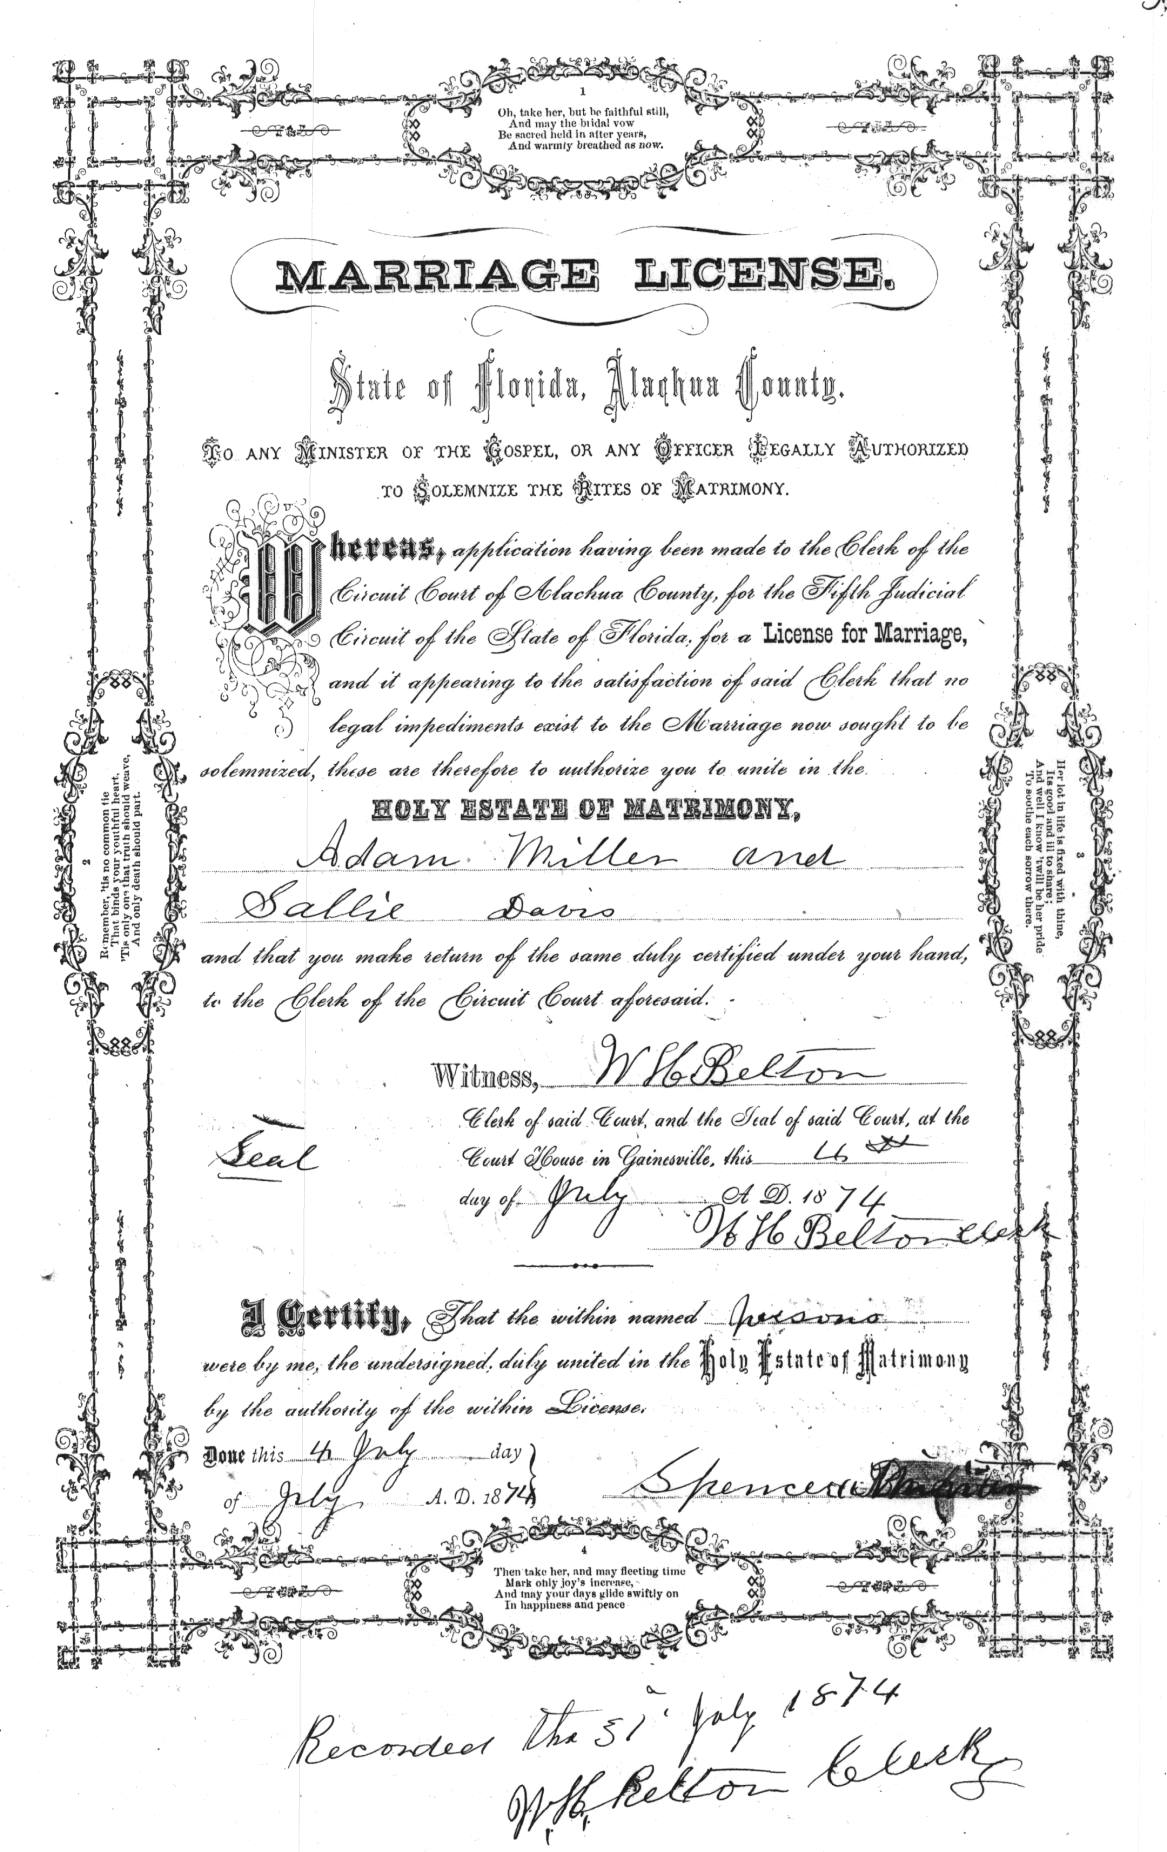 1
Oh, take her, but be faithful still,
And may the bridal vow
Be sacred held in after years,
And warmly breathed as now.
MARRIAGE LICENSE.
State of Florida, Alachua County.
To any Minister of the Gospel, or any Officer Legally Authorized
to Solemnize the Rites of Matrimony.
Whereas, application having been made to the Clerk of the
Circuit Court of Alachua County, for the Fifth Judicial
Circuit of the State of Florida, for a License for Marriage,
and it appearing to the satisfaction of said Clerk that no
legal impediments exist to the Marriage now sought to be
solemnized, these are therefore to authorize you to unite in the
HOLY ESTATE OF MATRIMONY,
Adam Miller and
Sallie Davis
and that you make return of the same duly certified under your hand,
to the Clerk of the Circuit Court aforesaid.
2
Remember, 'tis no common tie
That binds your youthful heart,
'Tis only one that truth should weave,
And only death should part.
3
Her lot in life is fixed with thine,
Its good and ill to share;
And well I know 'twill be her pride
To soothe each sorrow there.
Witness, W H Belton
Clerk of said Court, and the Seal of said Court, at the
Seal
Court House in Gainesville, this 4th
day of July A. D. 1874
W H Belton Clerk
I Certify, That the within named persons
were by me, the undersigned, duly united in the Holy Estate of Matrimony
by the authority of the within License.
Done this 4 July day
of July A. D. 1874
Spencer
4
Then take her, and may fleeting time
Mark only joy's increase,
And may your days glide swiftly on
In happiness and peace
Recorded the 31 July 1874
W. H. Belton Clerk